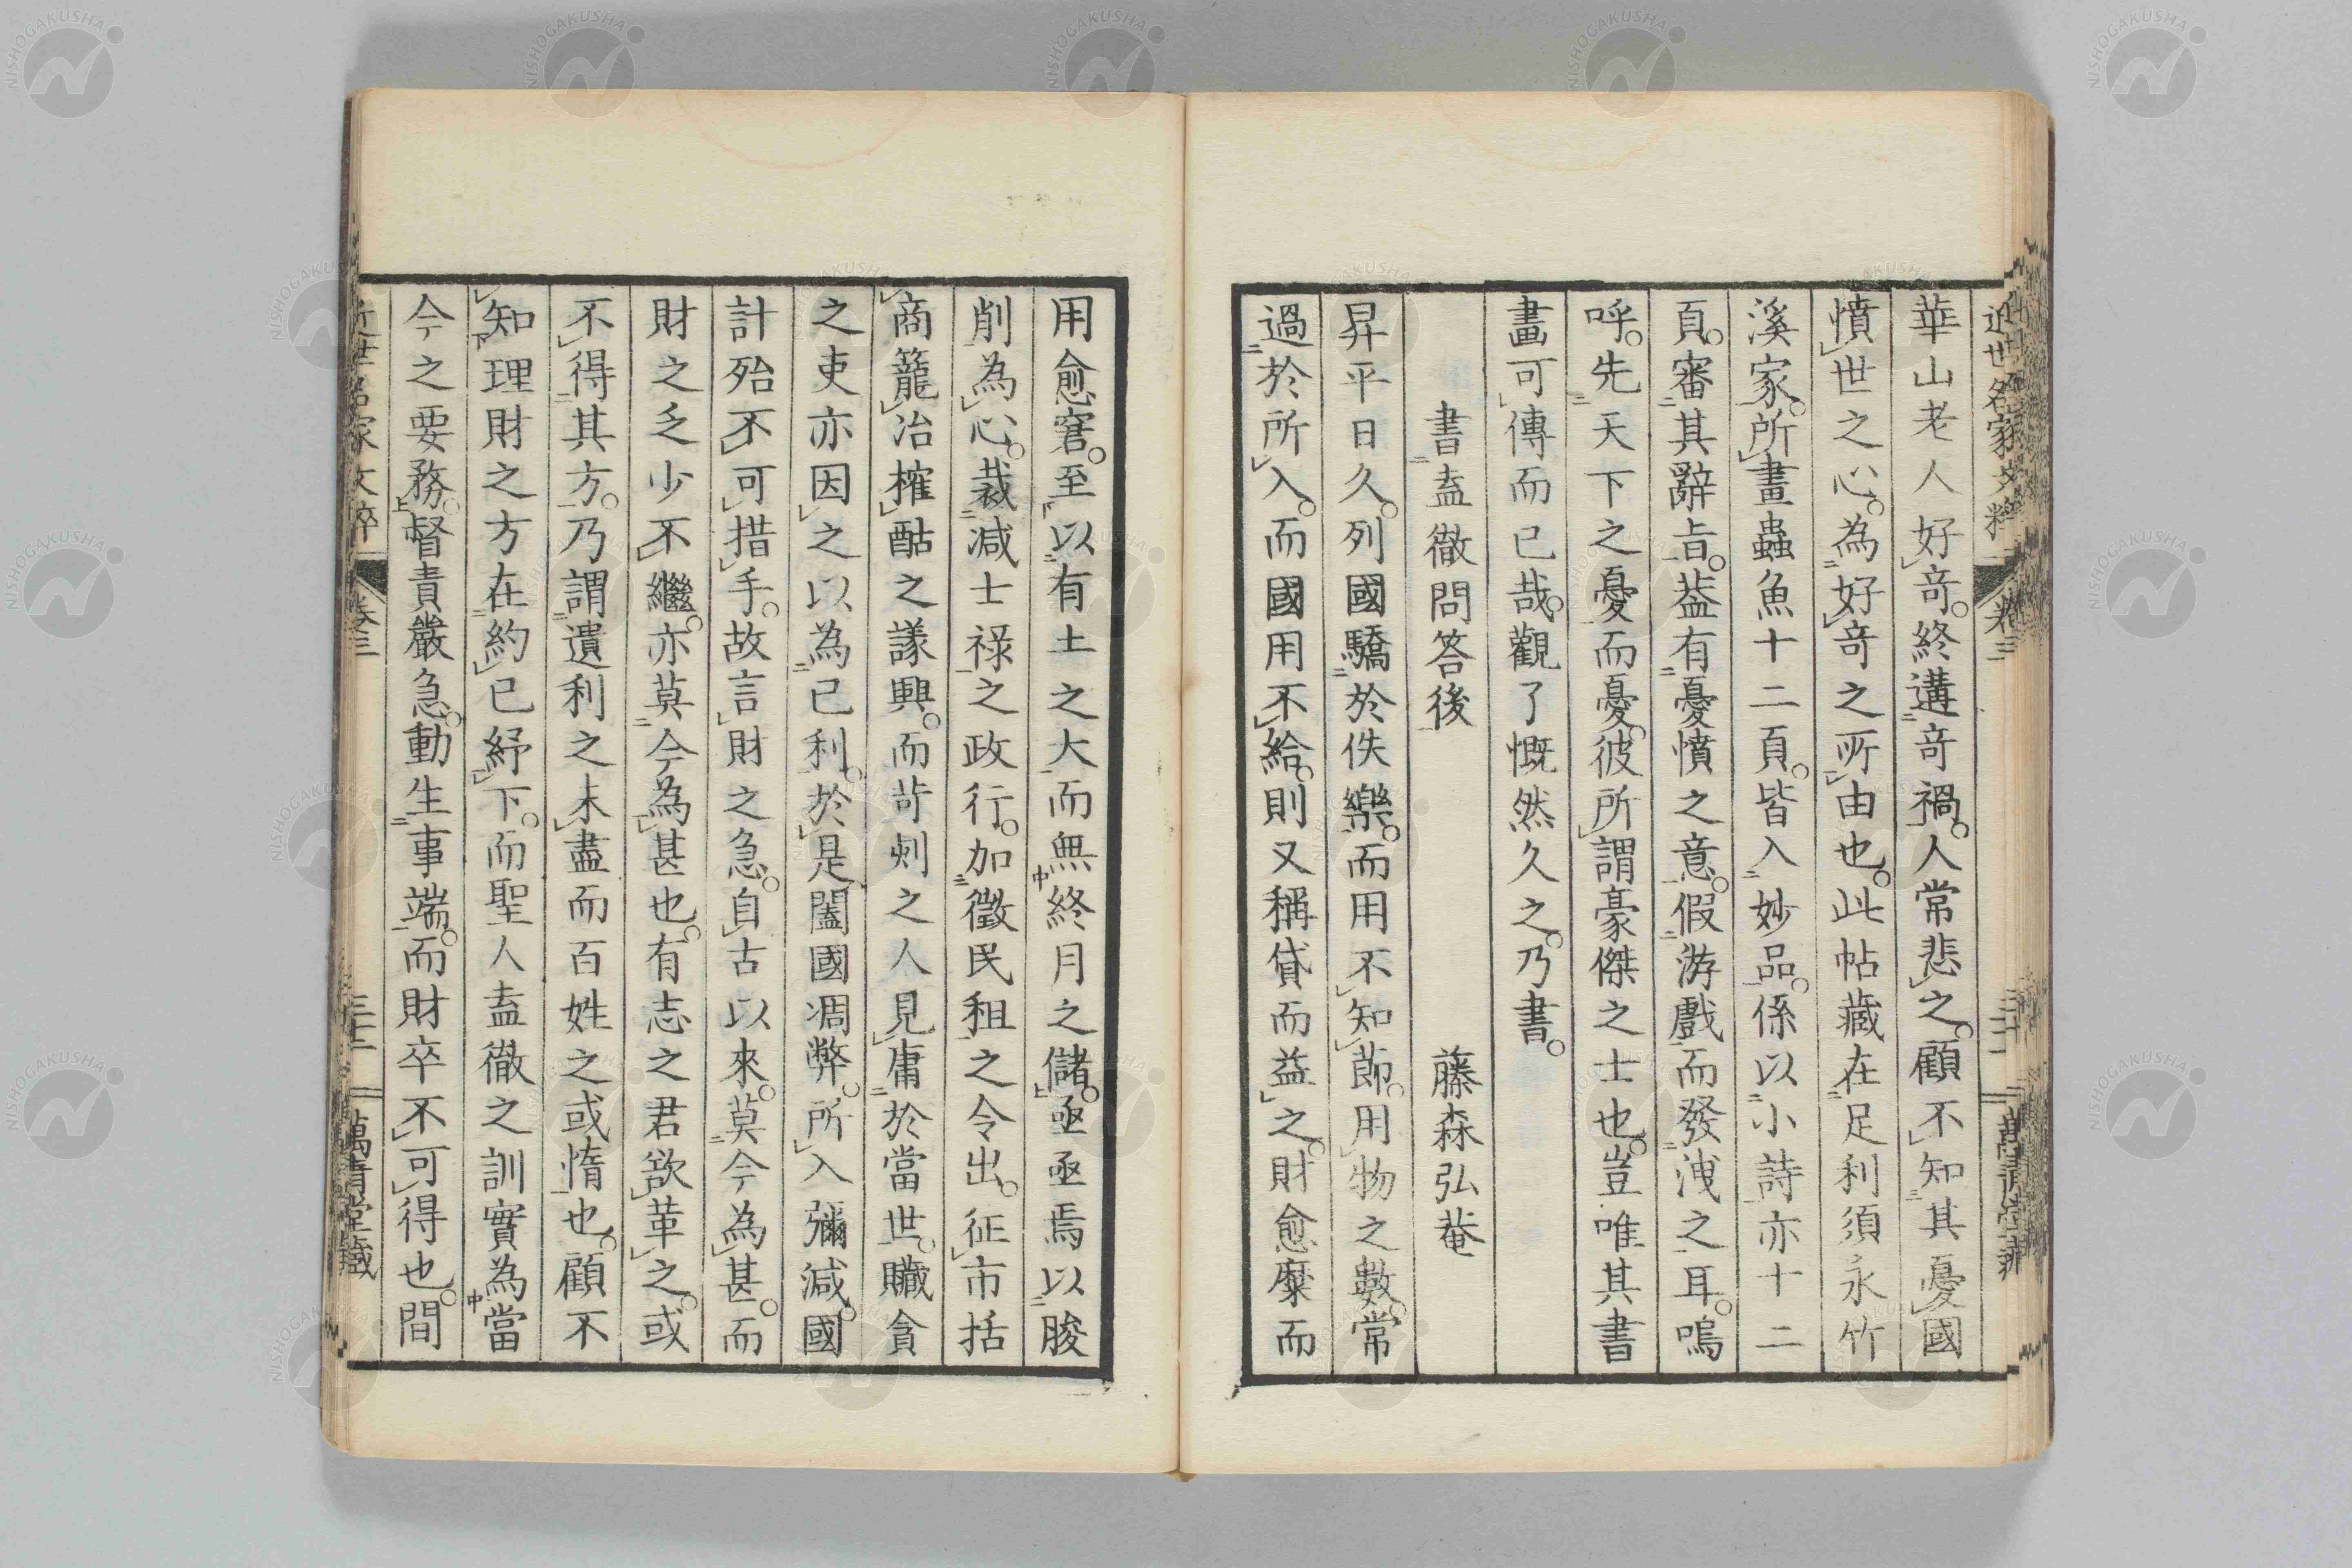 華山老人好竒。終遘竒禍。人常悲之。顧不知其憂國
憤世之心。為好竒之所由也。此帖藏在足利須永竹
溪家。所畫蟲魚十二頁。皆入妙品。係以小詩亦十二
頁。審其辭旨。葢有憂憤之意。假游戲而發洩之耳。嗚
呼。先天下之憂而憂。彼所謂豪傑之士也。豈唯其書
畫可傳而已哉。觀了慨然久之。乃書。
書盍徹問答後
藤森弘菴
昇平日久。列國驕於佚樂。而用不知節。用物之數。常
過於所入。而國用不給。則又稱貸而益之。財愈糜而
用愈窘。至以有土之大而無終月之儲。亟亟焉以朘
削為心。裁減士祿之政行。加徵民租之令出。征市括
商籠冶榷酤之議興。而苛刻之人見庸於當世。贓貪
之吏亦因之以為己利。於是闔國凋弊。所入彌減。國
計殆不可措手。故言財之急。自古以來。莫今為甚。而
財之乏少不繼。亦莫今為甚也。有志之君欲革之。或
不得其方。乃謂遺利之未盡而百姓之或惰也。顧不
知理財之方在約己紓下。而聖人盍徹之訓實為當
今之要務。督責嚴急。動生事端。而財卒不可得也。間
近世名家文粹
卷三
萬青堂藏